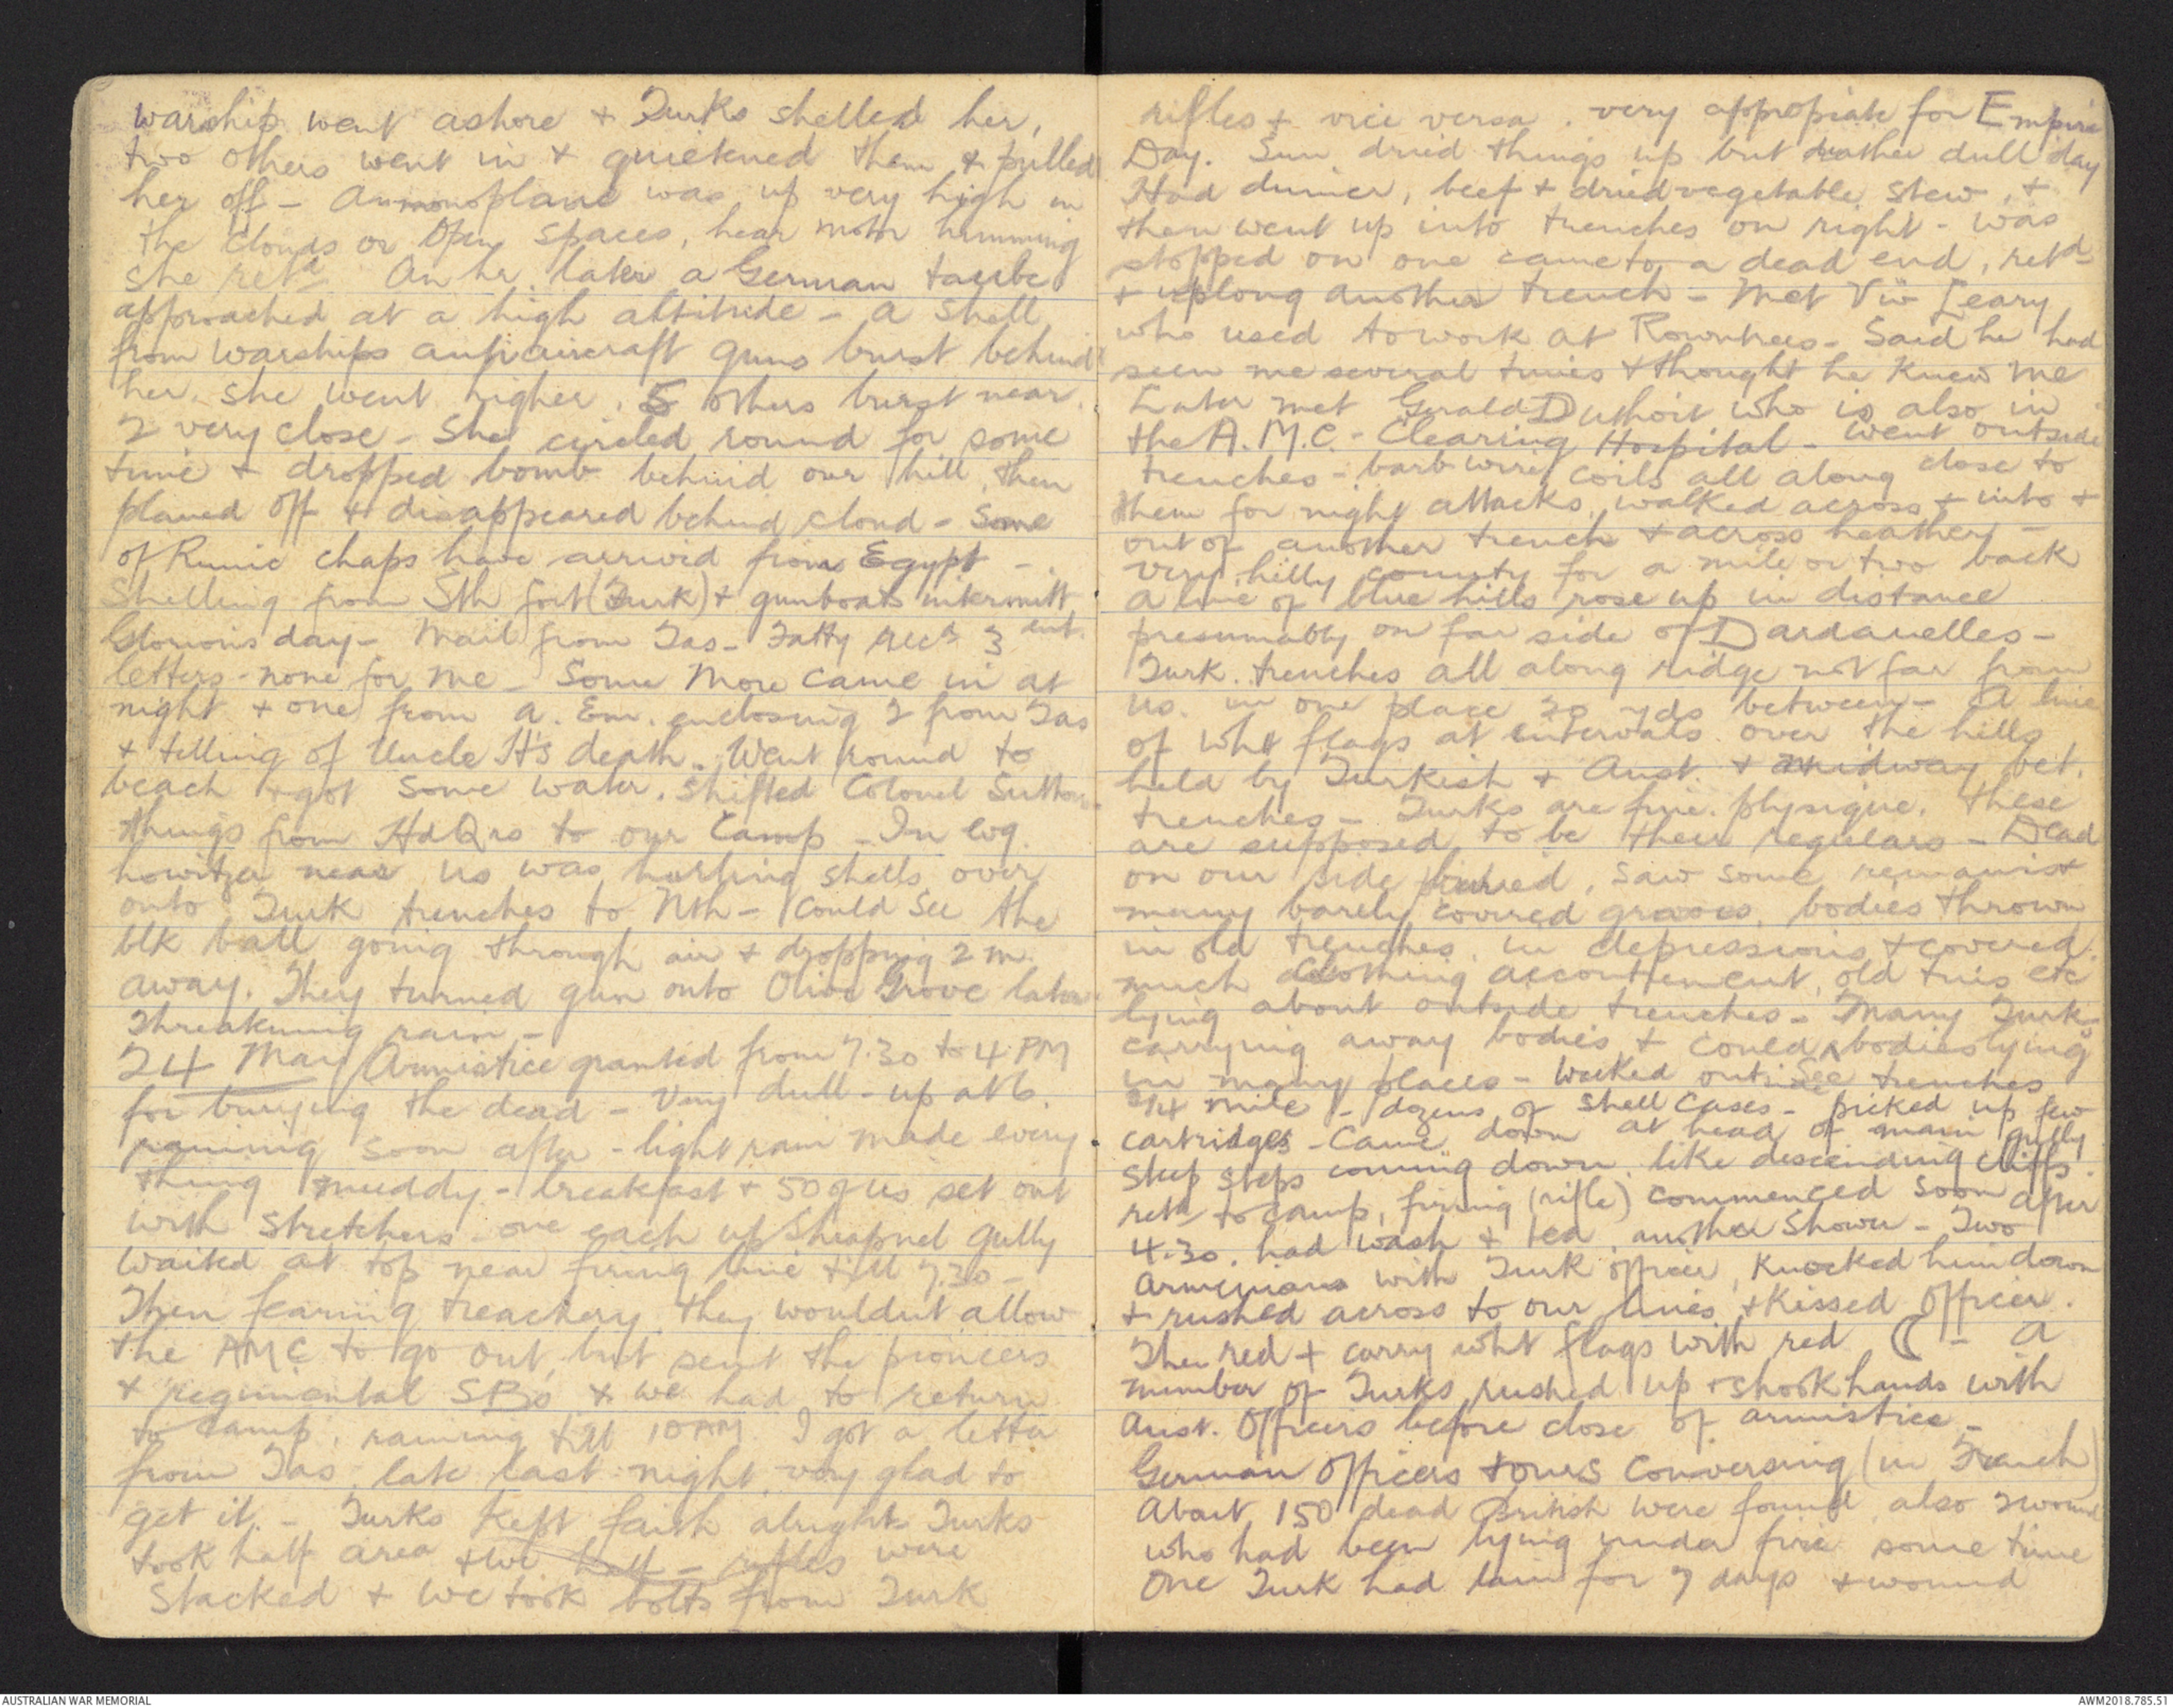 warship went ashore + Turks shelled her,
two others went in + quietened them & pulled
her off - A monoplane was up very high in
the clouds or open spaces, hear motor humming
she retd. An hr. later a German taube
approached at a high altitude - a shell
from warships antiaircraft guns burst behind
her, she went higher. 5 others burst near
2 very close - She circled round for some
time + dropped bomb behind our hill, then
planed off & disappeared behind cloud - Some
of Runic chaps have arrived from Egypt -
Shelling from Sth fort (Turk) + gunboats intermitt
ent.
Glorious day - Mail from Tas - Fatty recd 3
letters - none for me - Some more came in at
night + one from A. Em. enclosing 2 from Tas
+ telling of Uncle H's death. Went round to
beach + got some water. Shifted Colonel Suttons
things from HdQrs to our camp - In evg.
howitzer near us was hurling shells over
onto Turk trenches to Nth - Could see the
blk ball going through air + dropping 2 m.
away. They turned gun onto Olive Grove later
Threatening rain -
24 May Armistice granted from 7.30 to 4 PM
for burying the dead - Very dull - up at 6.
raining soon after - light rain made every
thing muddy - breakfast + 50 of us set out
with stretchers - one each up Shrapnel gully
waited at top near firing line till 7.30 -
Then fearing treachery they wouldnt allow
the AMC to go out, but sent the pioneers
+ regimental SBs & we had to return
to camp, raining till 10 AM. I got a letter
from Tas. late last night, very glad to
get it. - Turks kept faith alright Turks
took half area + we half - rifles were
Stacked + we took bolts from Turk
rifles + vice versa. very appropiate for Empire
Day. Sun dried things up but rather dull day
Had dinner, beef + dried vegetable stew, +
then went up into trenches on right - was
stopped on one came to a dead end, retd
+ up long another trench - Met Viv Leary
who used to work at Rowntrees - Said he had
seen me several times + thought he knew me
Later met Gerald Duthoit who is also in
the A.M.C. - Clearing Hospital - went outside
trenches - barb wire coils all along close to
them for night attacks, walked across + into +
out of another trench + across heather -
very hilly county for a mile or two back
a line of blue hills rose up in distance
presumably on far side of Dardanelles -
Turk. trenches all along ridge not far from
us. in one place 30 yds between - A line
of wht flags at intervals over the hills
held by Turkish + Aust. + midway bet.
trenches - Turks are fine physique. These
are supposed to be their regulars - Dead
on our side buried, saw some remains +
many barely covered graves, bodies thrown
in old trenches, in depressions + covered.
much clothing accoutrement, old tins etc
lying about outside trenches - Many Turks
carrying away bodies + could see bodies lying
in many places - walked outside trenches
3/4 mile - dozens of shell cases - picked up few
cartridges - Came down at head of main gully
steep steps coming down, like descending cliffs.
retd to camp, firing (rifle) commenced soon after
4.30. had wash + tea, another shower - Two
Armenians with Turk officer, knocked him down
+ rushed across to our lines + kissed officer.
The red + carry wht flags with red ☾ - A
number of Turks rushed up + shook hands with
Aust. Officers before close of armistice -
German officers + ours conversing (in French)
About 150 dead British were found also 2 wound
who had been lying under fire some time
One Turk had lain for 7 days + wound
AUSTRALIAN WAR MEMORIAL
AWM2018.785.51